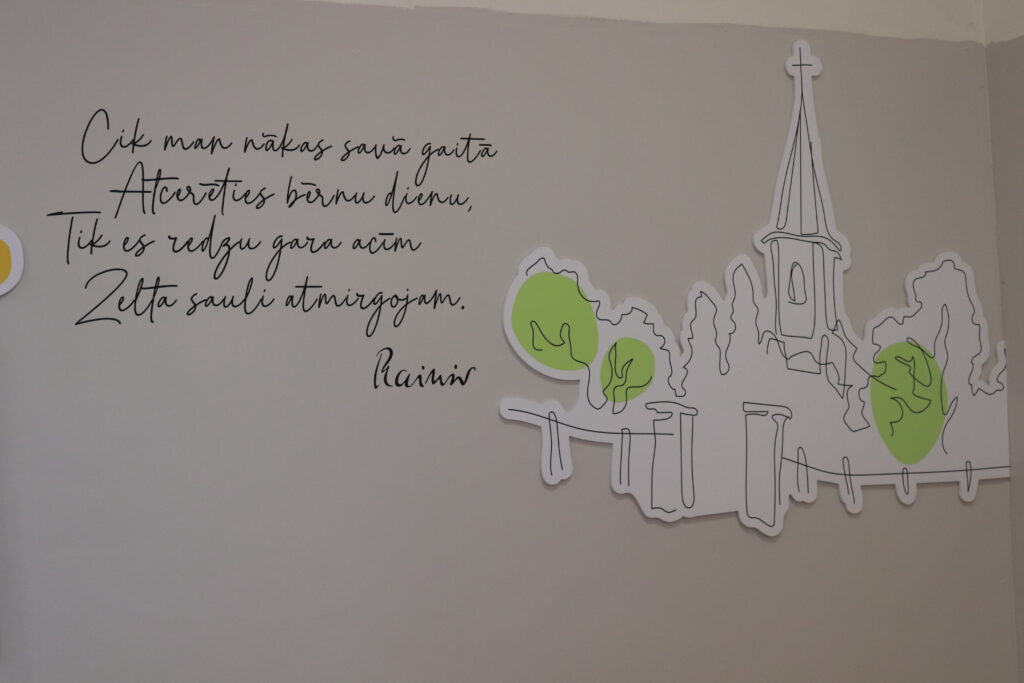 Cik man nākas savā gaitā
Atcerēties bērnu dienu,
Tik es redzu gara acīm
Zelta sauli atmirgojam.
Rainis